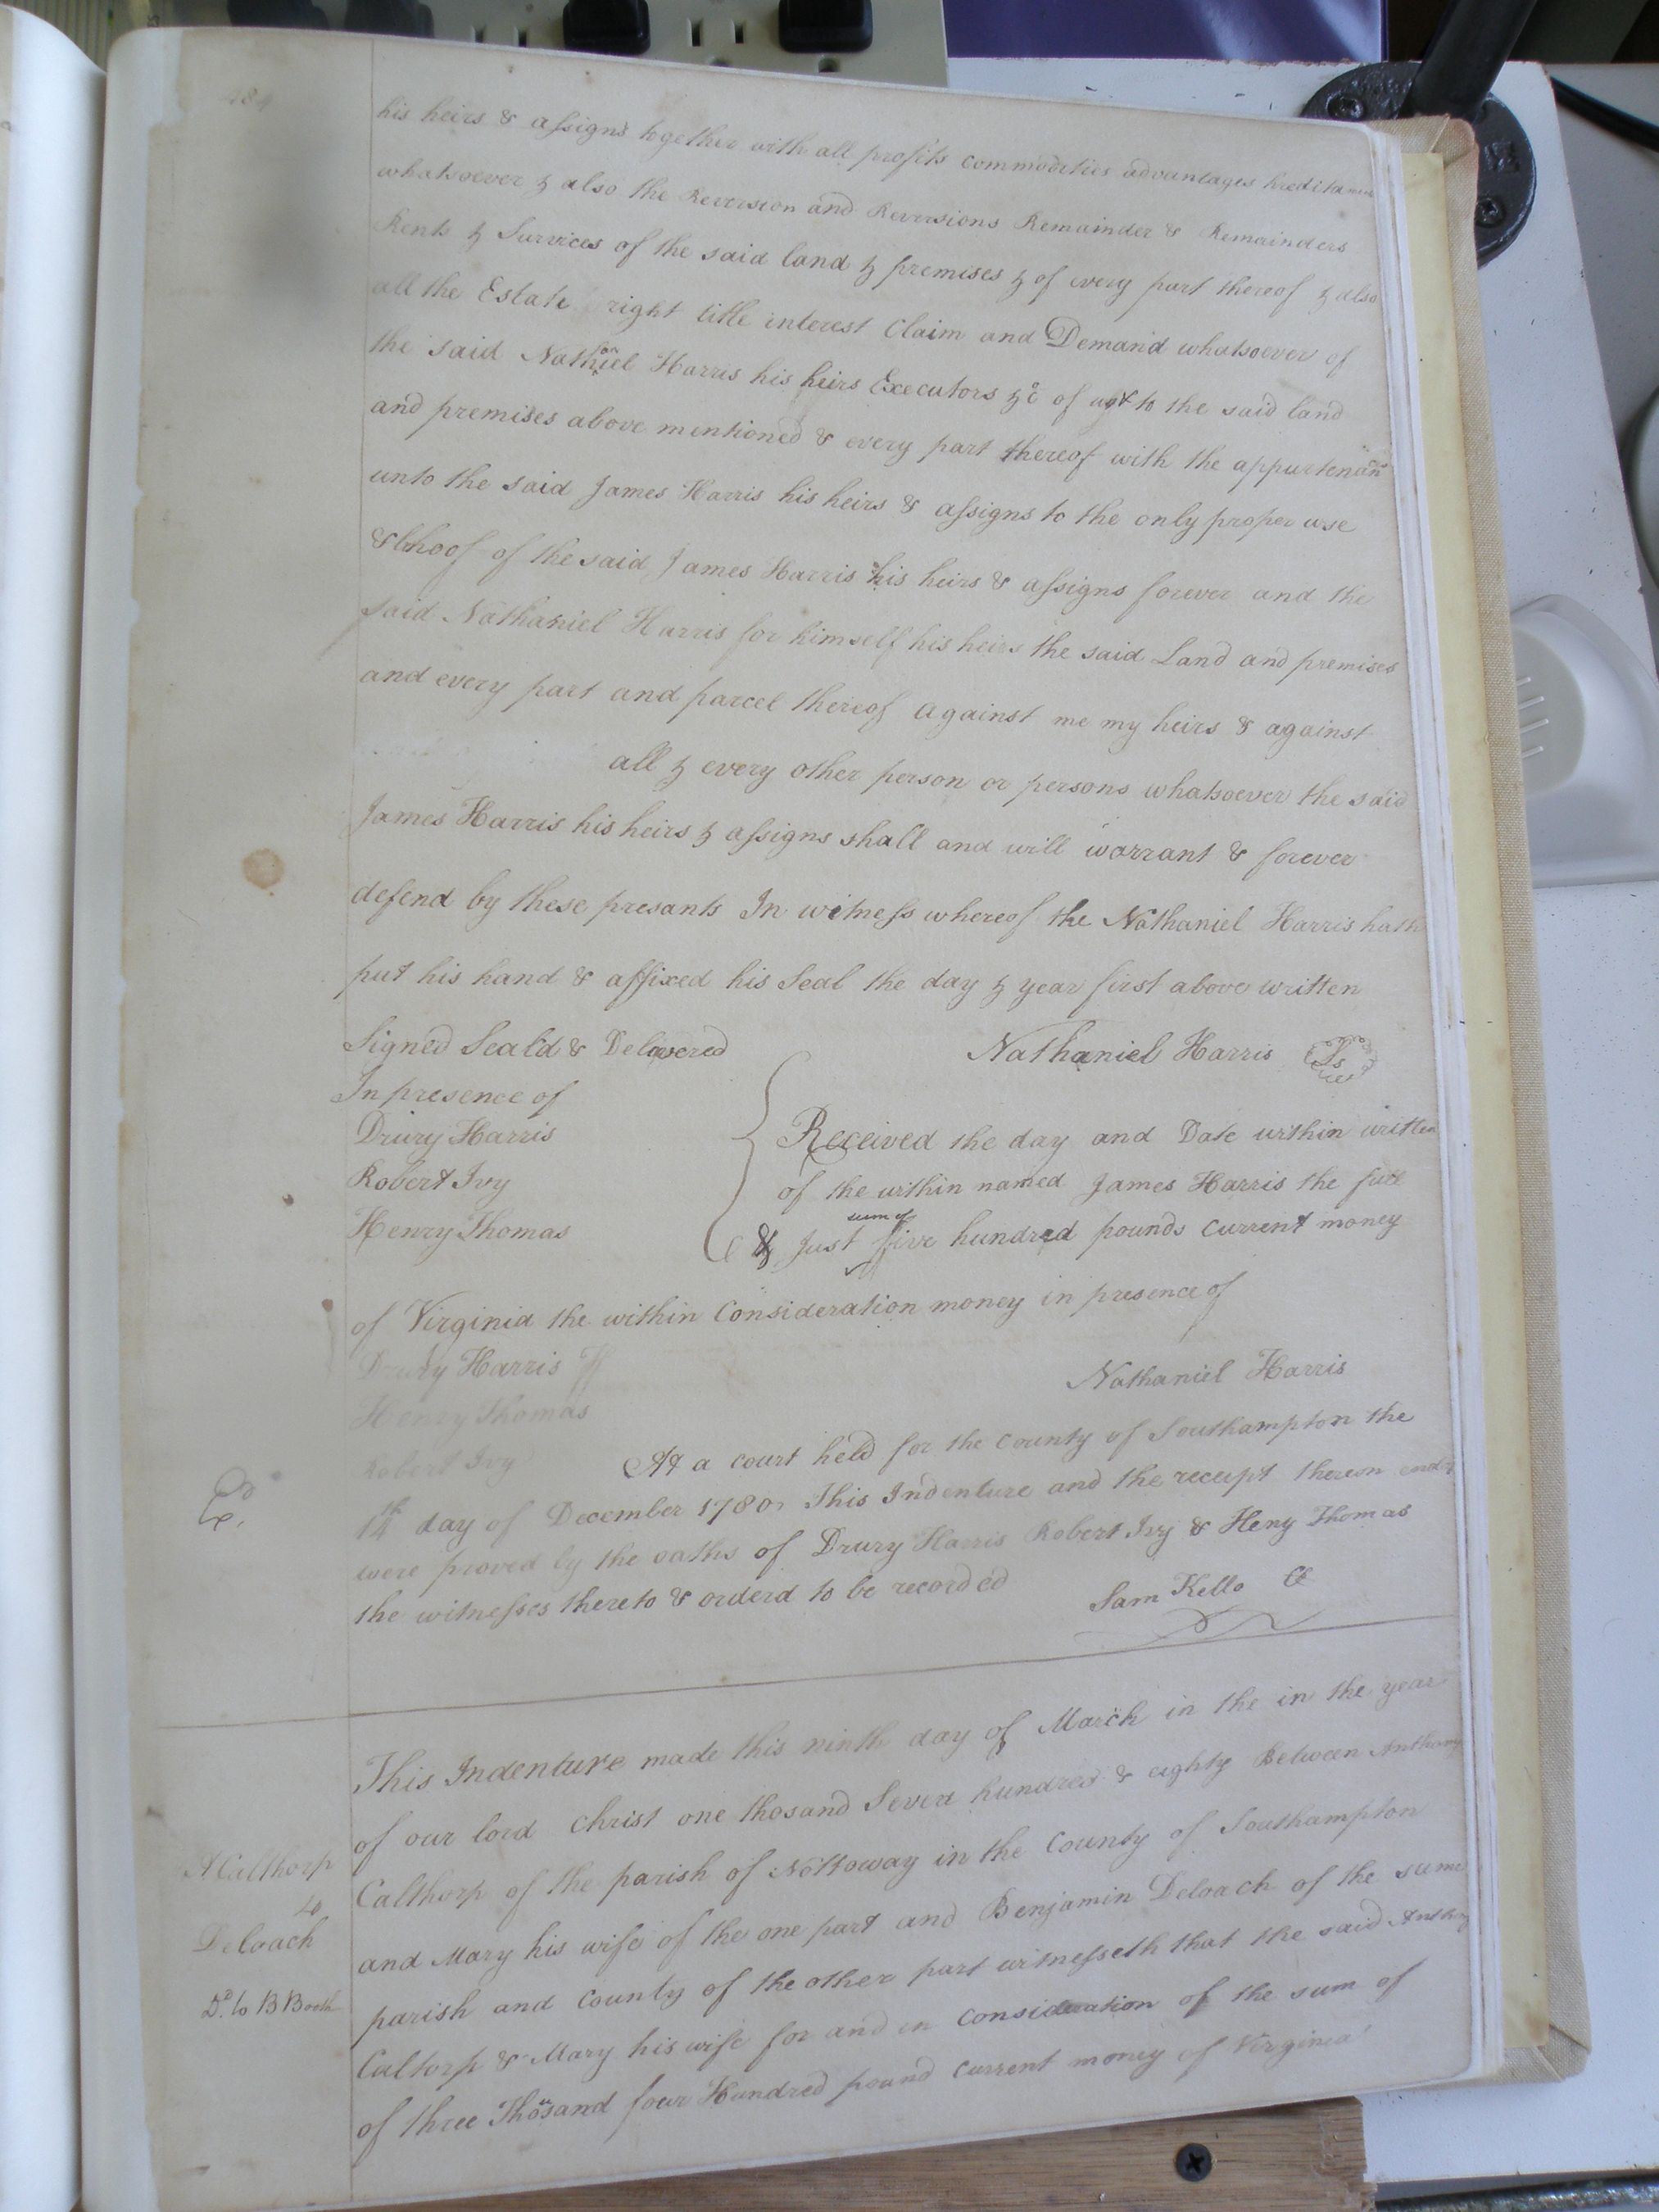 484
his heirs & assigns together with all profits commodities advantages hreditamen
whatsoever & also the Reversion and Reversions Remainder & Remainders
Rents & Survices of the said land & premises & of every part thereof & also
all the Estate right title interest Claim and Demand whatsoever of
the said Nathaniel Harris his heirs Executors &c of to the said land
and premises above mentioned & every part thereof with the appurtenan
unto the said James Harris his heirs & assigns to the only proper use
& bhoof of the said James Harris his heirs & assigns forever and the
said Nathaniel Harris for himself his heirs the said Land and premises
and every part and parcel thereof against me my heirs & against
all & every other person or persons whatsoever the said
James Harris his heirs & assigns shall and will warrant & forever
defend by these presants In witness whereof the Nathaniel Harris hath
put his hand & affixed his Seal the day & year first above written
Signed Seald & Delavered
Nathaniel Harris Ls
In presence of
Drury Harris
Robert Ivy
Henry Thomas
Received the day and Date within written
of the within named James Harris the full
& Just sum of five hundred pounds current money
of Virginia the within Consideration money in presence of
Drury Harris
Nathaniel Harris
Henry Thomas
Robert Ivy
At a court held for the County of Southampton the
14th day of December 1780. This Indenture and the receipt thereon endd
were proved by the oaths of Drury Harris Robert Ivy & Heny Thomas
the witnesses thereto & orderd to be recorded
Sam Kello Cl
Ex.
This Indenture made this ninth day of March in the in the year
of our lord Christ one thosand Seven hundred & eighty Between Anthony
Calthorp of the parish of Nottoway in the County of Southampton
and Mary his wife of the one part and Benjamin Deloach of the same
parish and County of the other part witnesseth that the said Anthony
Caltorp & Mary his wife for and in Consideration of the sum of
of three Thousand four Hundred pound current money of Virginia
A Calthorp
to
Deloach
Dd. to B Booth